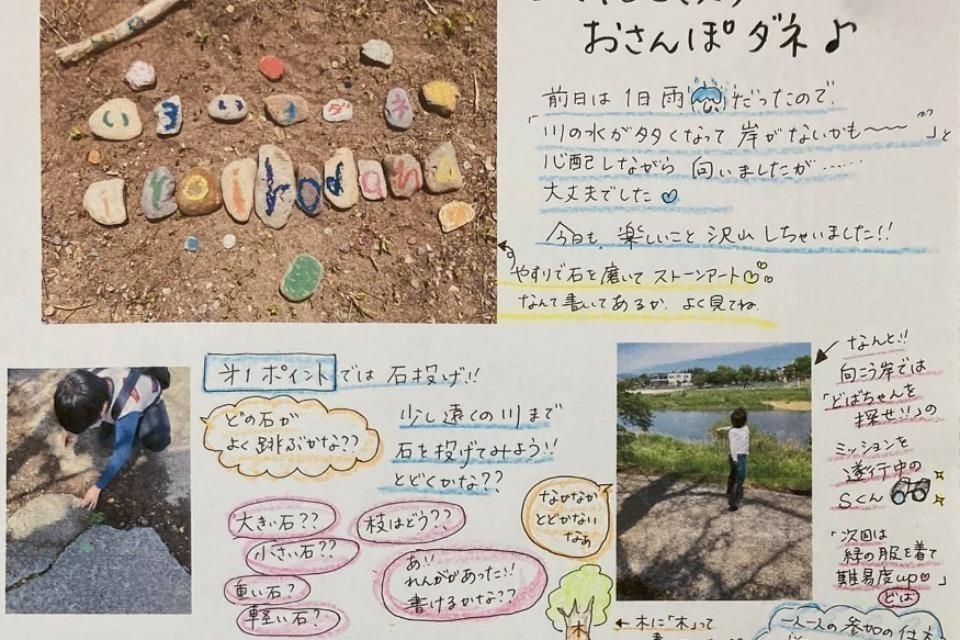 おさんぽダネ♪
前日は1日雨だったので、
「川の水が多くなって岸がないかも〜〜〜"」と
心配しながら向いましたが……
大丈夫でした♡
今日も、楽しいこと沢山しちゃいました!!
やすりで石を磨いてストーンアート♡
なんて書いてあるか、よく見てね。
いまいいまダネ
itoihodana
㐧1ポイントでは石投げ!!
どの石が
よく跳ぶかな??
少し遠くの川まで
石を投げてみよう!!
とどくかな??
大きい石??
枝はどう??
小さい石??
重い石?
軽い石?
あ!!
れんががあった!!
書けるかな??
なかなか
とどかない
なぁ
木
←木に「木」って
なんと!!
向こう岸では
「どばちゃんを
探せ!!」の
ミッションを
遂行中の
Sくん
「次回は
緑の服を着て
難易度up♡」
どば
一人一人の参加の仕方